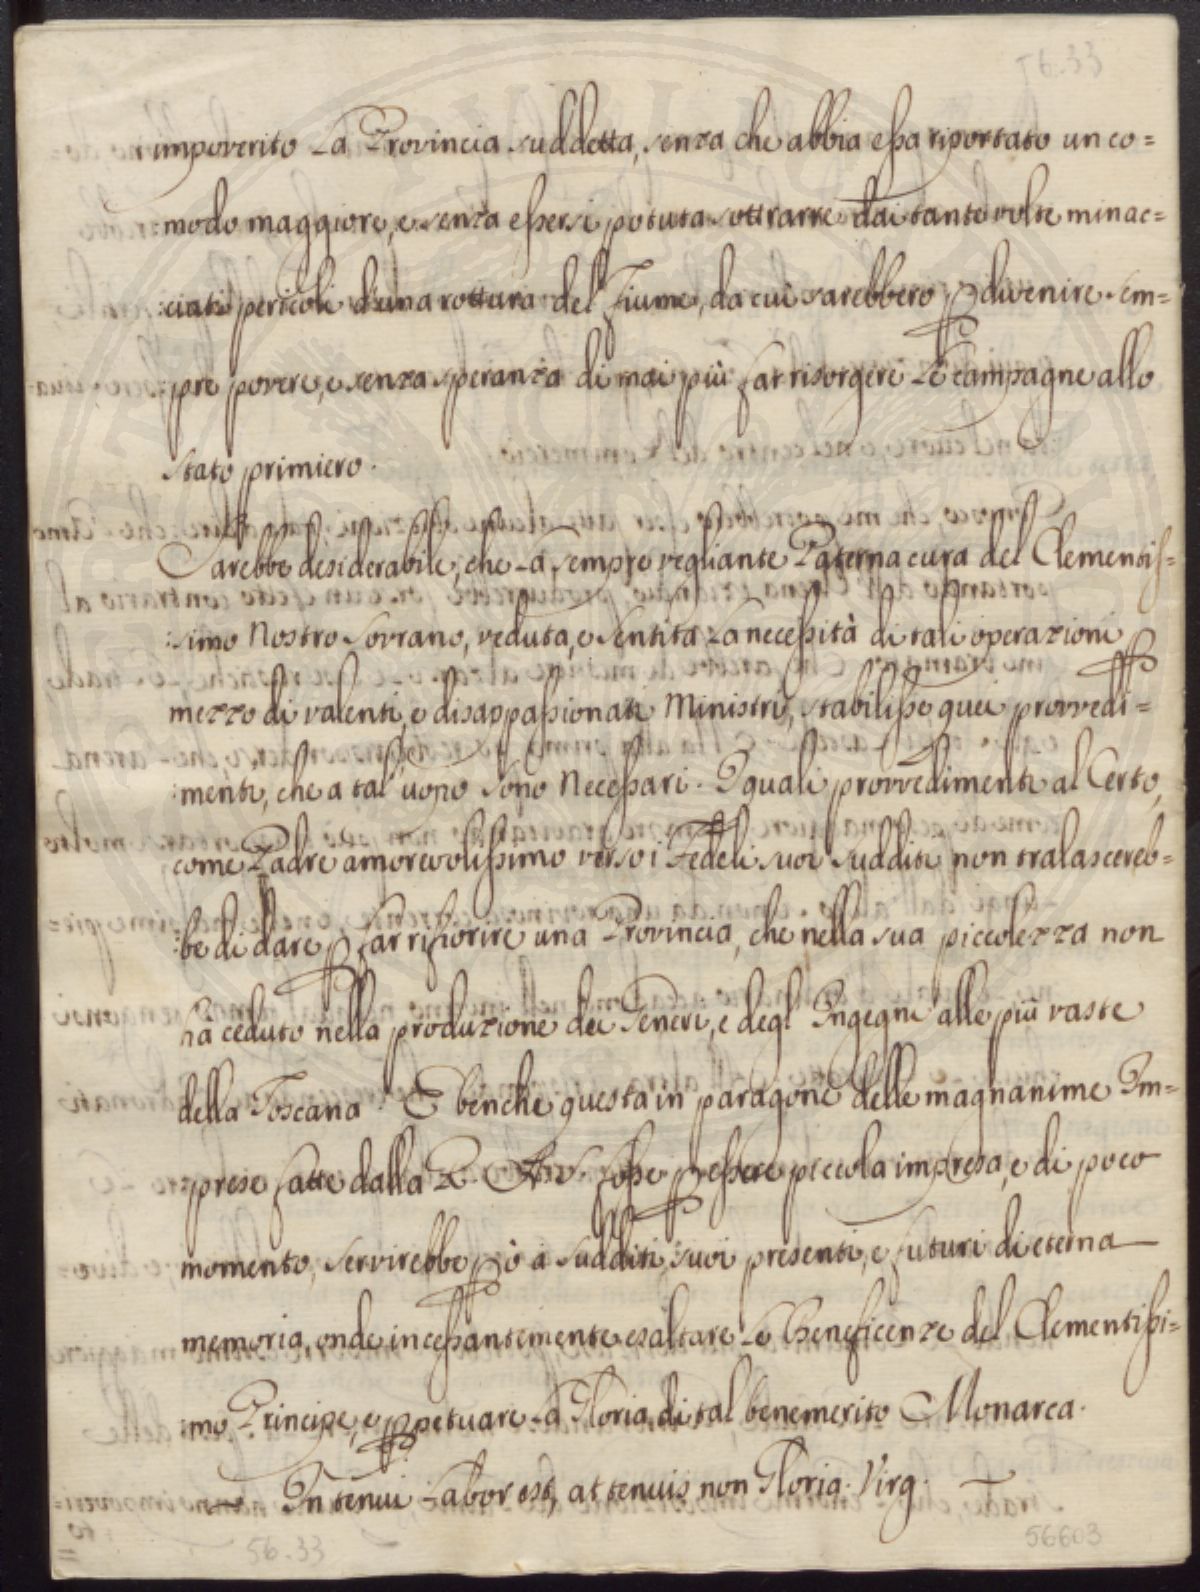 56.33
impoverito La Provincia suddetta, senza che abbia essa riportato un co=
modo maggiore, e senza essersi potuta sottrarre dai tante volte minac=
:ciati pericoli d'una rottura del Fiume, da cui sarebbero p divenire sem=
pre povere, e senza speranza di mai più far risorgere Le campagne allo
stato primiero.
Sarebbe desiderabile, che La sempre vegliante Paterna cura del Clementis=
:simo Nostro Sovrano, veduta, e sentita La necessità di tali operazioni p
mezzo di valenti, e disappassionati Ministri, stabilisse quei provvedi=
:menti, che a tal' uopo sono Necessari. I quali provvedimenti al Certo,
come Padre amorevolissimo verso i Fedeli suoi sudditi non tralascereb=
:be di dare p far rifiorire una Provincia, che nella sua piccolezza non
ha ceduto nella produzione dei Generi, e degl' Ingegni alle più vaste
della Toscana. E benche questa in paragone delle magnanime Im=
:prese fatte dalla R. A. V. fosse p essere piccola impresa, e di poco
momento, servirebbe pò a sudditi suoi presenti, e futuri di eterna
memoria, onde incessantemente esaltare Le Beneficenze del Clementissi=
:mo Principe, e ppetuare La Gloria di tal benemerito Monarca.
In tenui Labor est, at tenuis non Gloria. Virg.
56.33
56603